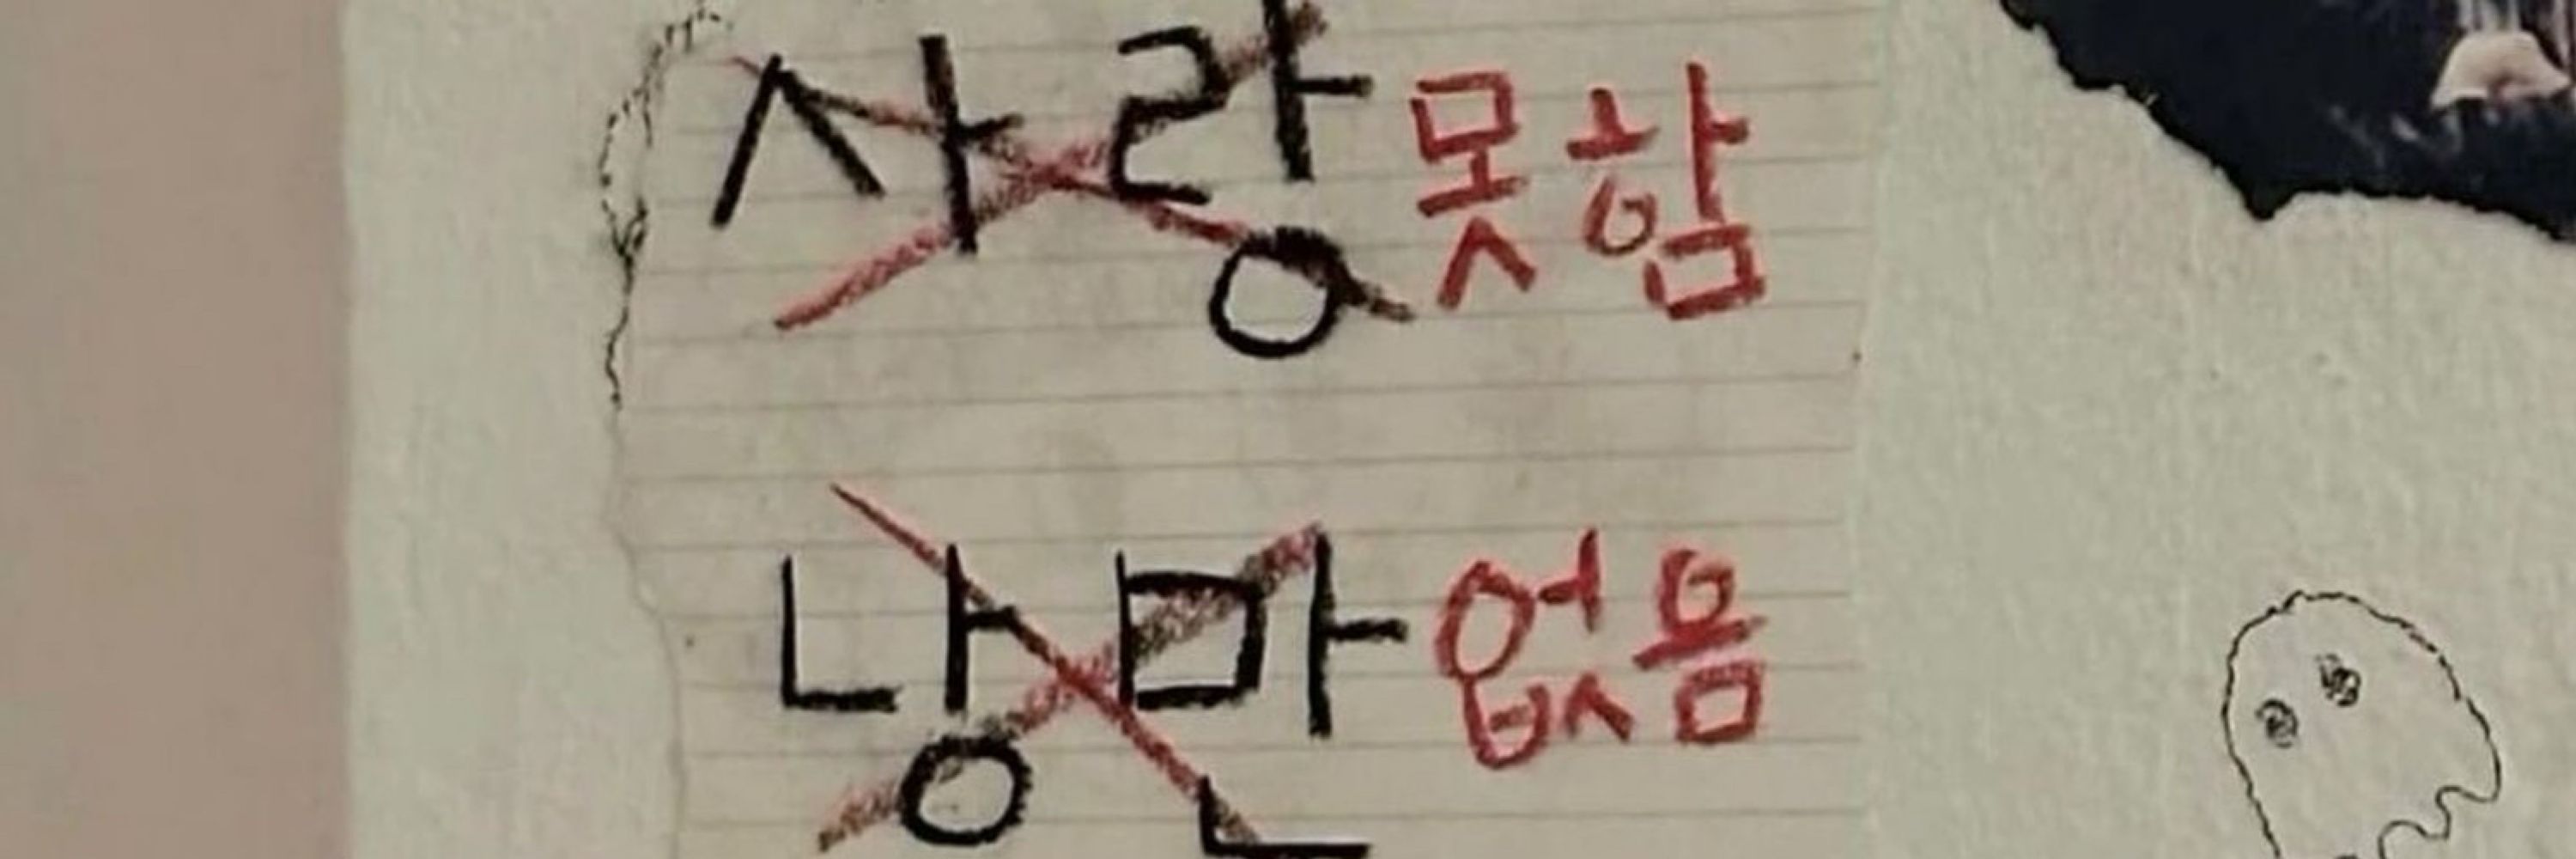 사랑 못함
낭만 없음